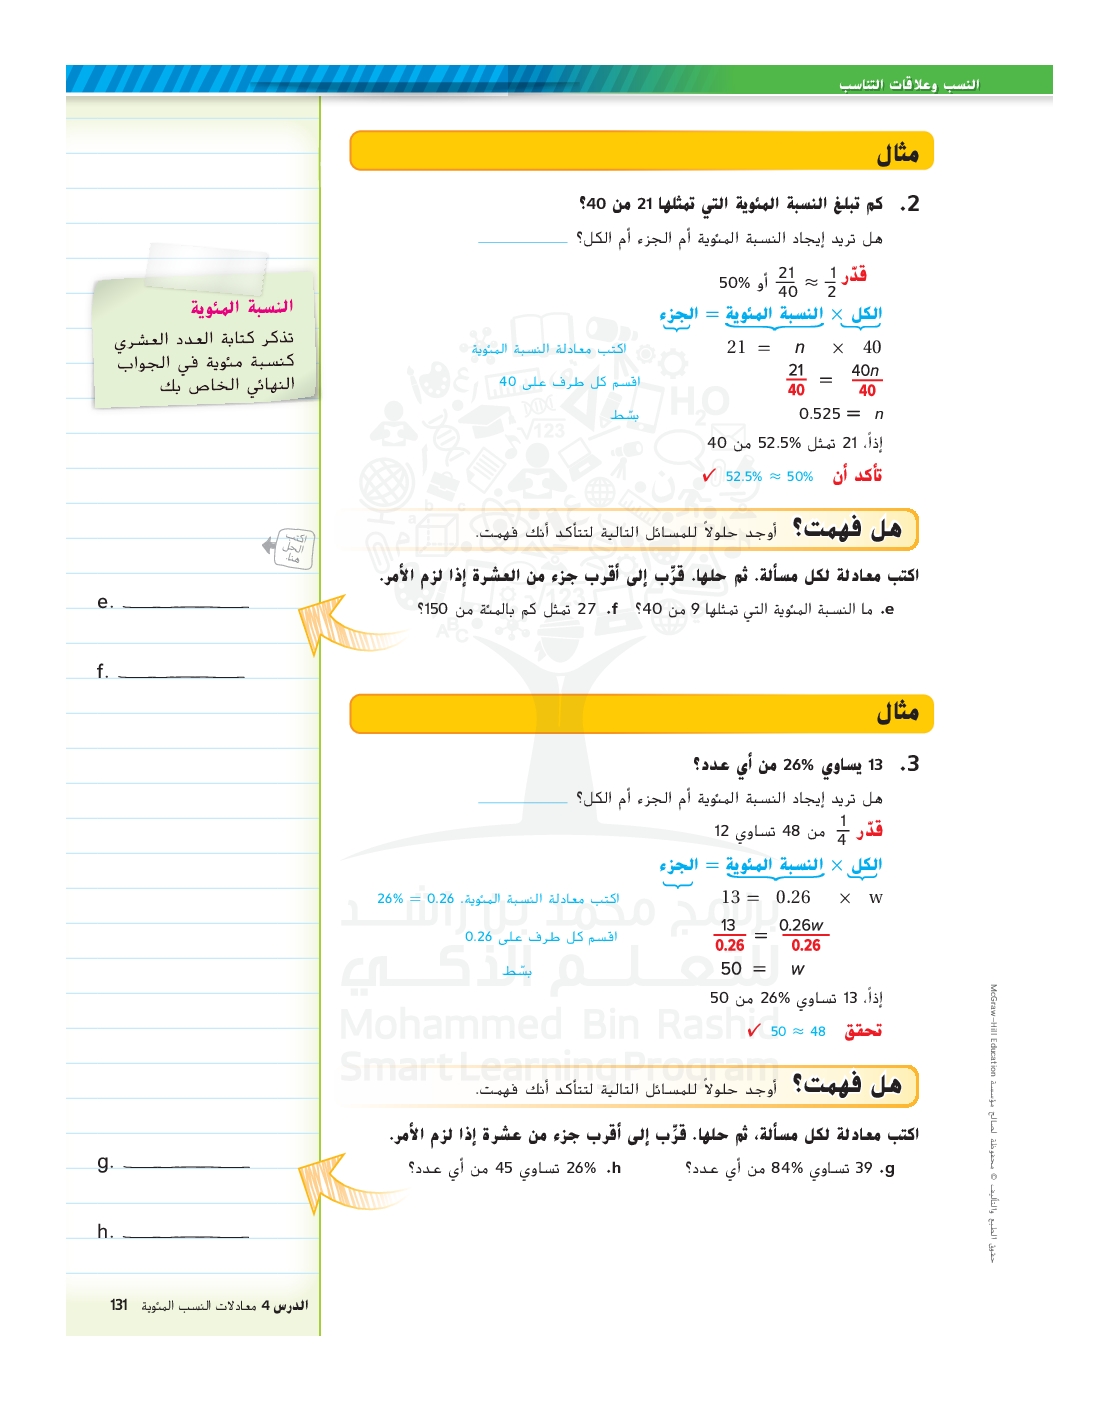 النسب وعلاقات التناسب
مثال
2. كم تبلغ النسبة المئوية التي تمثلها 21 من 40؟
هل تريد إيجاد النسبة المئوية أم الجزء أم الكل؟ ________
قدّر 1/2 ≈ 21/40 أو 50%
الكل × النسبة المئوية = الجزء
21 = n × 40 اكتب معادلة النسبة المئوية
21/40 = 40n/40 اقسم كل طرف على 40
0.525 = n بسّط
إذاً، 21 تمثل 52.5% من 40
تأكد أن 52.5% ≈ 50% ✓
هل فهمت؟ أوجد حلولاً للمسائل التالية لتتأكد أنك فهمت.
اكتب معادلة لكل مسألة. ثم حلها. قرِّب إلى أقرب جزء من العشرة إذا لزم الأمر.
e. ما النسبة المئوية التي تمثلها 9 من 40؟ f. 27 تمثل كم بالمئة من 150؟
مثال
3. 13 يساوي 26% من أي عدد؟
هل تريد إيجاد النسبة المئوية أم الجزء أم الكل؟ ________
قدّر 1/4 من 48 تساوي 12
الكل × النسبة المئوية = الجزء
13 = 0.26 × w اكتب معادلة النسبة المئوية. 0.26 = 26%
13/0.26 = 0.26w/0.26 اقسم كل طرف على 0.26
50 = w بسّط
إذاً، 13 تساوي 26% من 50
تحقق 48 ≈ 50 ✓
هل فهمت؟ أوجد حلولاً للمسائل التالية لتتأكد أنك فهمت.
اكتب معادلة لكل مسألة، ثم حلها. قرِّب إلى أقرب جزء من عشرة إذا لزم الأمر.
g. 39 تساوي 84% من أي عدد؟ h. 26% تساوي 45 من أي عدد؟
النسبة المئوية
تذكر كتابة العدد العشري
كنسبة مئوية في الجواب
النهائي الخاص بك
اكتب
الحل
هنا.
e. ________
f. ________
g. ________
h. ________
برنامج محمد بن راشد
للتعلم الذكي
Mohammed Bin Rashid
Smart Learning Program
حقوق الطبع والتأليف © محفوظة لصالح مؤسسة McGraw-Hill Education
الدرس 4 معادلات النسب المئوية 131